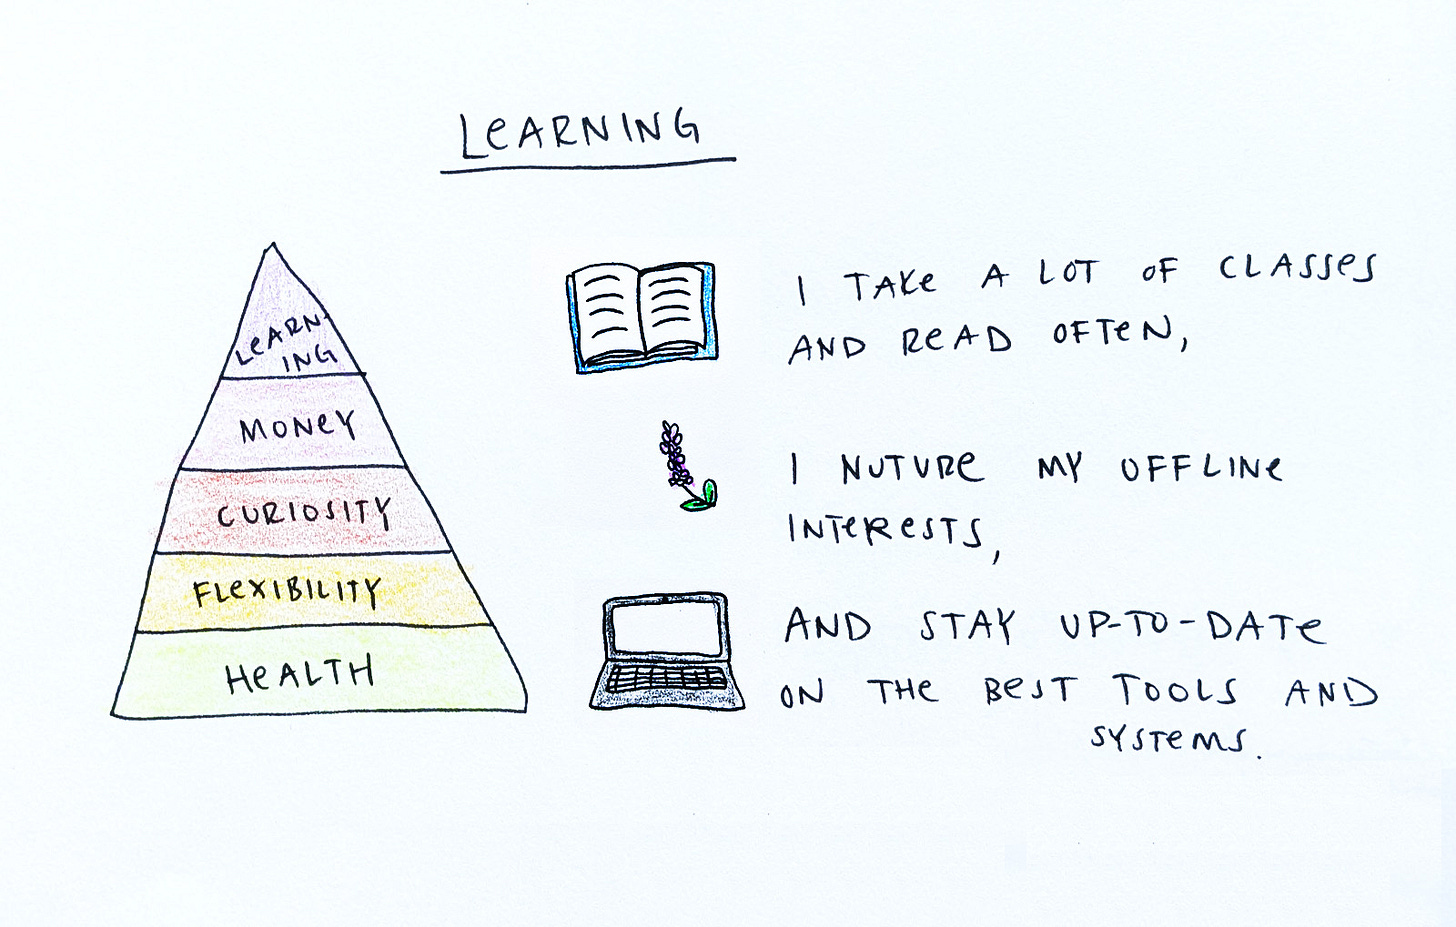 LEARNING
LEARN-
ING
MONEY
CURIOSITY
FLEXIBILITY
HEALTH
I TAKE A LOT OF CLASSES
AND READ OFTEN,
I NUTURE MY OFFLINE
INTERESTS,
AND STAY UP-TO-DATE
ON THE BEST TOOLS AND
SYSTEMS.